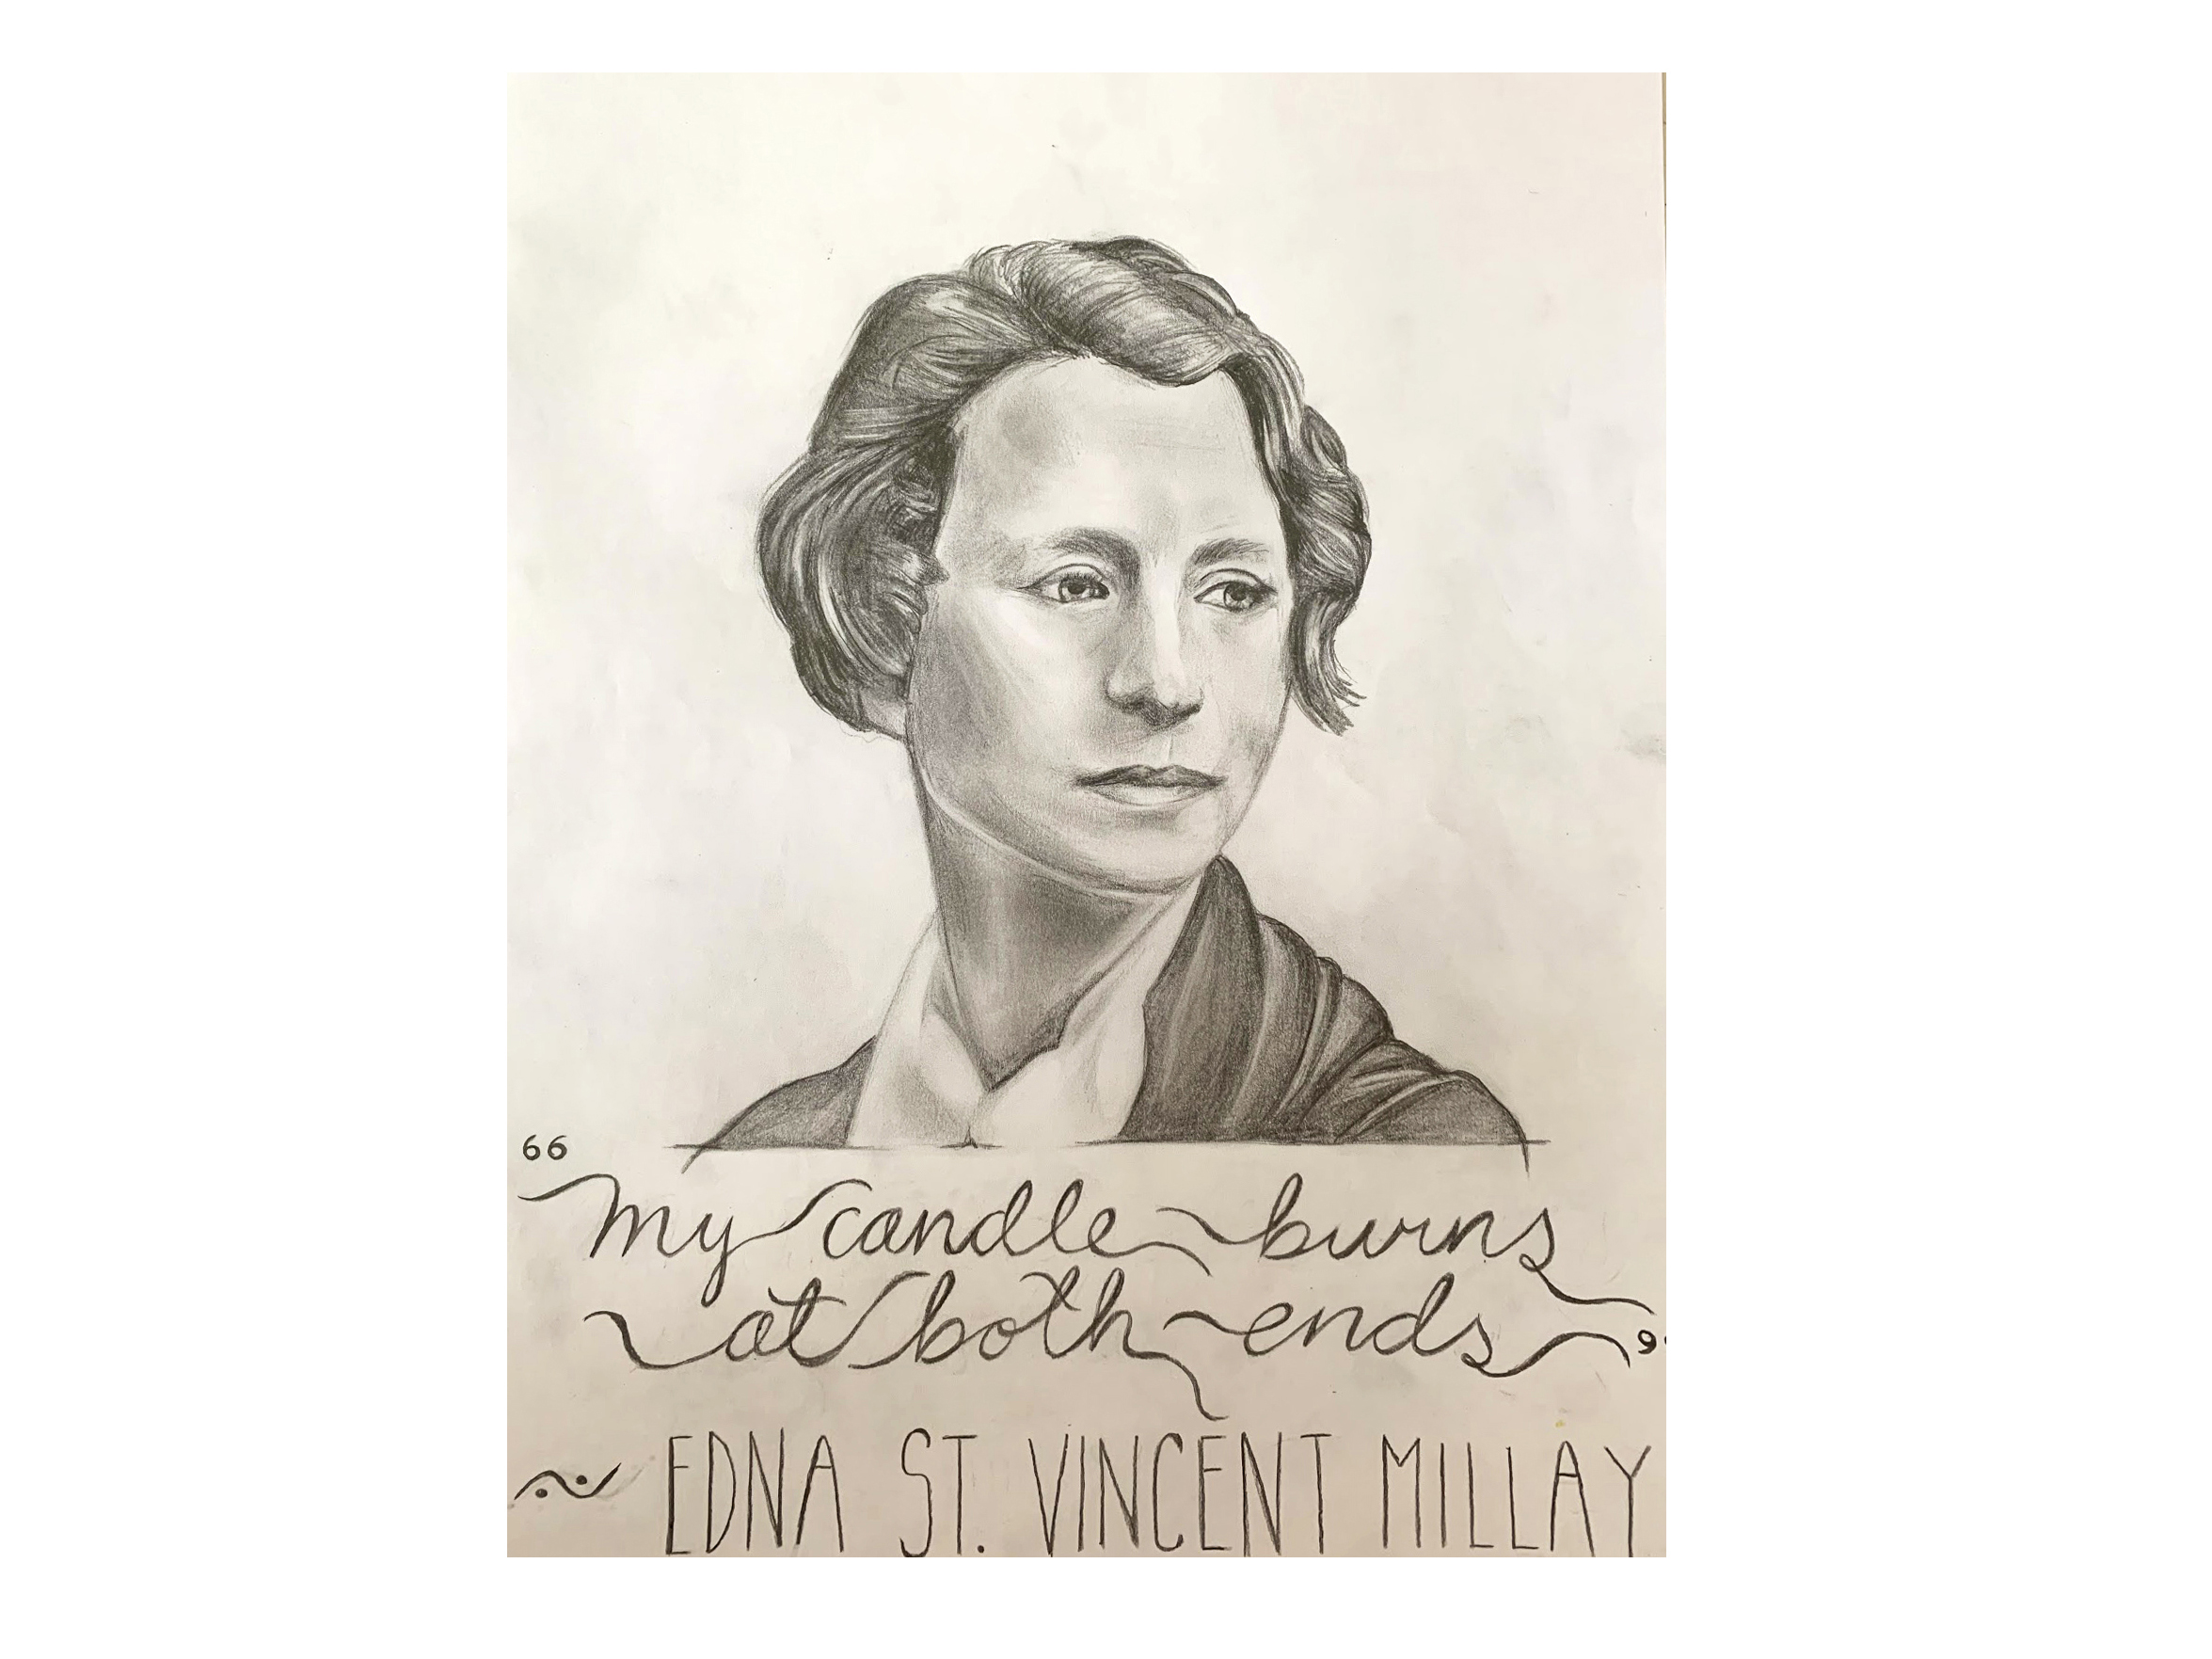 “
my candle burns
at both ends
”
~ EDNA ST. VINCENT MILLAY